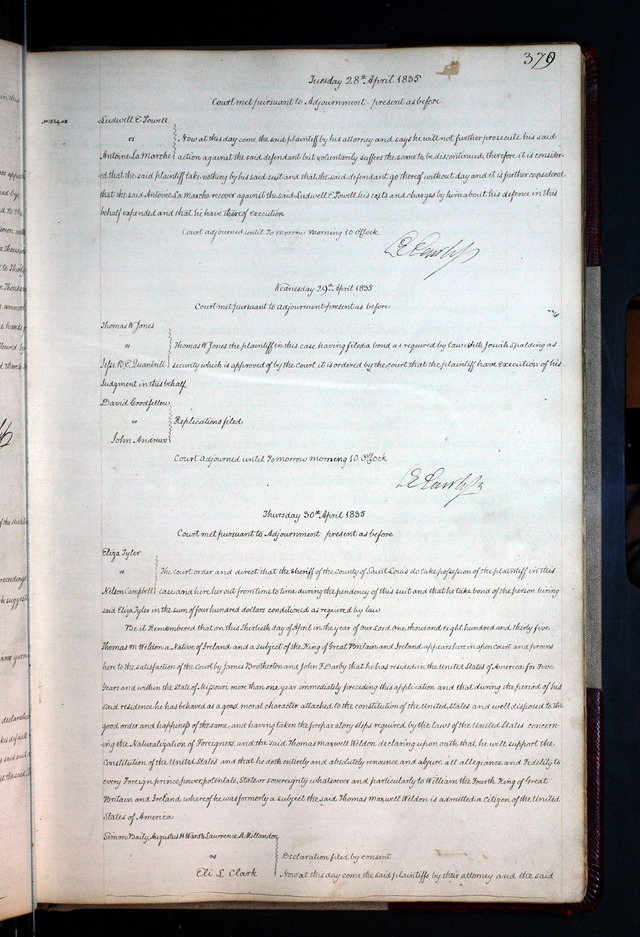 379
Tuesday 28th April 1835
Court met pursuant to Adjournment - present as before
Ludwell E. Powell
vs
Now at this day come the said plaintiff by his attorney and says he will not further prosecute his said
Antoine La Marche action against the said defendant but voluntarily suffers the same to be discontinued, therefore it is consider-
ed that the said plaintiff take nothing by his said suit and that the said defendant go thereof without day and it is further considered
that the said Antoine La Marche recover against the said Ludwell E Powell his costs and charges by him about his defence in this
behalf expended and that he have thereof execution
Court adjourned until Tomorrow Morning 10 O'Clock
Wednesday 29th April 1835
Court met pursuant to adjourment present as before
Thomas W Jones
vs
Thomas W Jones the plaintiff in this case having filed a bond as required by law with Josiah Spalding as
Jesse D. E. Quantrill security which is approved of by the court it is ordered by the court that the plaintiff have execution of his
Judgment in this behalf
David Goodfellow
vs
Replications filed
John Andrews
Court Adjourned until Tomorrow morning 10 O'Clock
Thursday 30th April 1835
Court met pursuant to Adjournment present as before
Eliza Tyler
vs
The court order and direct that the Sheriff of the county of Saint Louis do take possession of the plaintiff in this
Nelson Campbell case and hire her out from time to time during the pendency of this suit and that he take bond of the person hiring
said Eliza Tyler in the sum of four hundred dollars conditioned as required by law
Be it Remembered that on this Thirtieth day of April in the year of our Lord one thousand eight hundred and thirty five
Thomas M. Weldon a Native of Ireland and a subject of the King of Great Britain and Ireland appears here in open court and proves
here to the satisfaction of the Court by James Brotherton and John F. Darby that he has resided in the United States of America for Five
Years and within the State of Missouri more than one year immediately preceding this application and that during the period of his
said residence he has behaved as a good moral character attached to the constitution of the United States and well disposed to the
good order and happiness of the same, and having taken the preparatory steps required by the laws of the United States concern-
ing the Naturalization of Foreigners, and the said Thomas Maxwell Weldon declaring upon oath that he will support the
Constitution of the United States and that he doth entirely and absolutely renounce and abjure all allegiance and Fidelity to
every Foreign prince, power, potentate, State or sovereignty whatsoever and particularly to William the Fourth King of Great
Britain and Ireland whereof he was formerly a subject the said Thomas Maxwell Weldon is admitted a Citizen of the United
States of America
Simon Baily, Augustus H Ward & Lawrence A. Millandon
vs
Declaration filed by consent
Eli L Clark Now at this day come the said plaintiffs by their attorney and the said